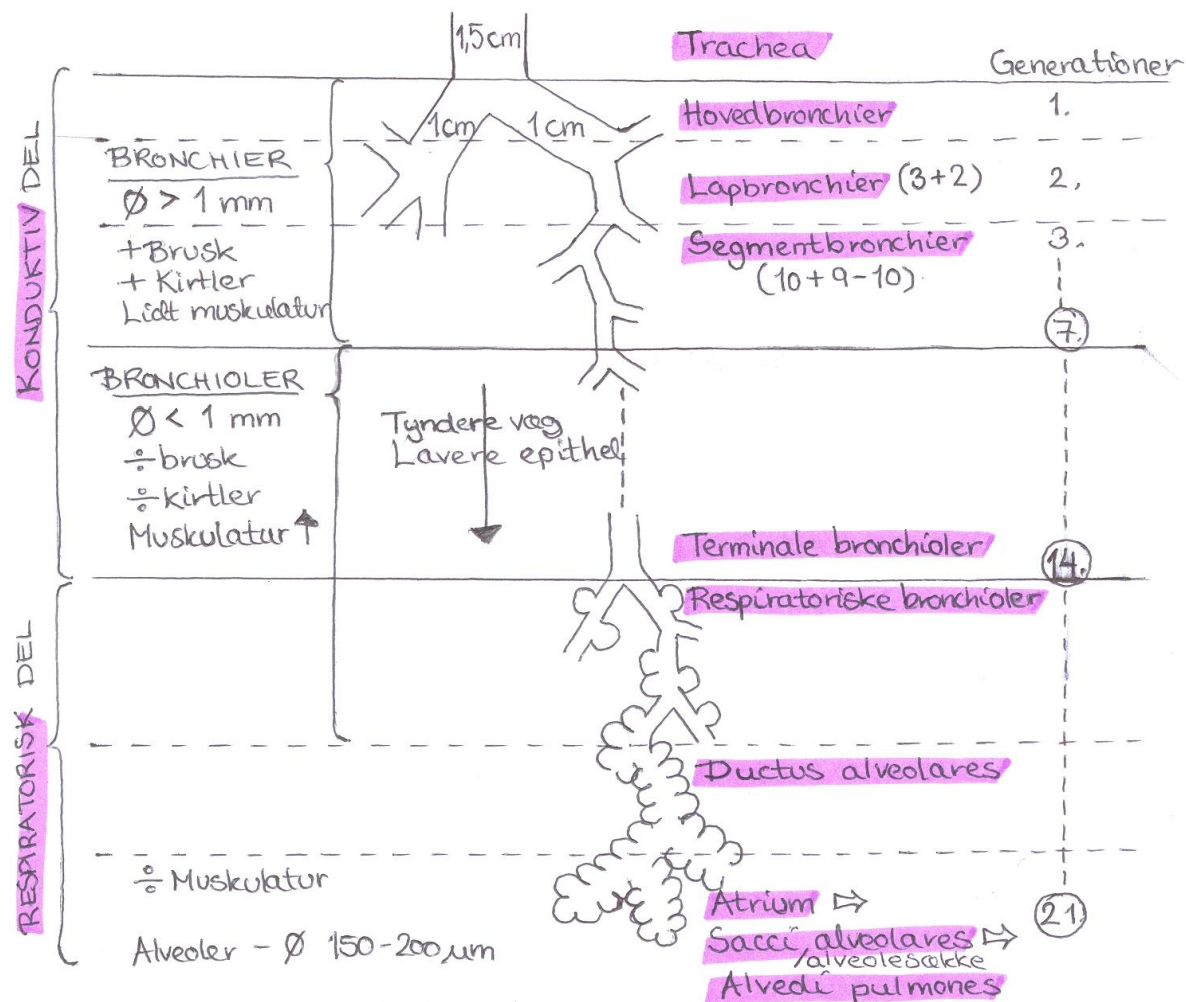 1,5cm
Trachea
Generationer
KONDUKTIV DEL
1cm 1cm
Hovedbronchier
1.
BRONCHIER
Ø > 1 mm
Lapbronchier (3+2)
2.
+Brusk
+ Kirtler
Lidt muskulatur
Segmentbronchier
(10+9-10)
3.
7.
BRONCHIOLER
Ø < 1 mm
÷brusk
÷kirtler
Muskulatur ↑
Tyndere væg
Lavere epithel
Terminale bronchioler
14.
RESPIRATORISK DEL
Respiratoriske bronchioler
Ductus alveolares
÷ Muskulatur
Alveoler - Ø 150-200 µm
Atrium ⇨
Sacci alveolares ⇨
/alveolesække
Alveoli pulmones
21.